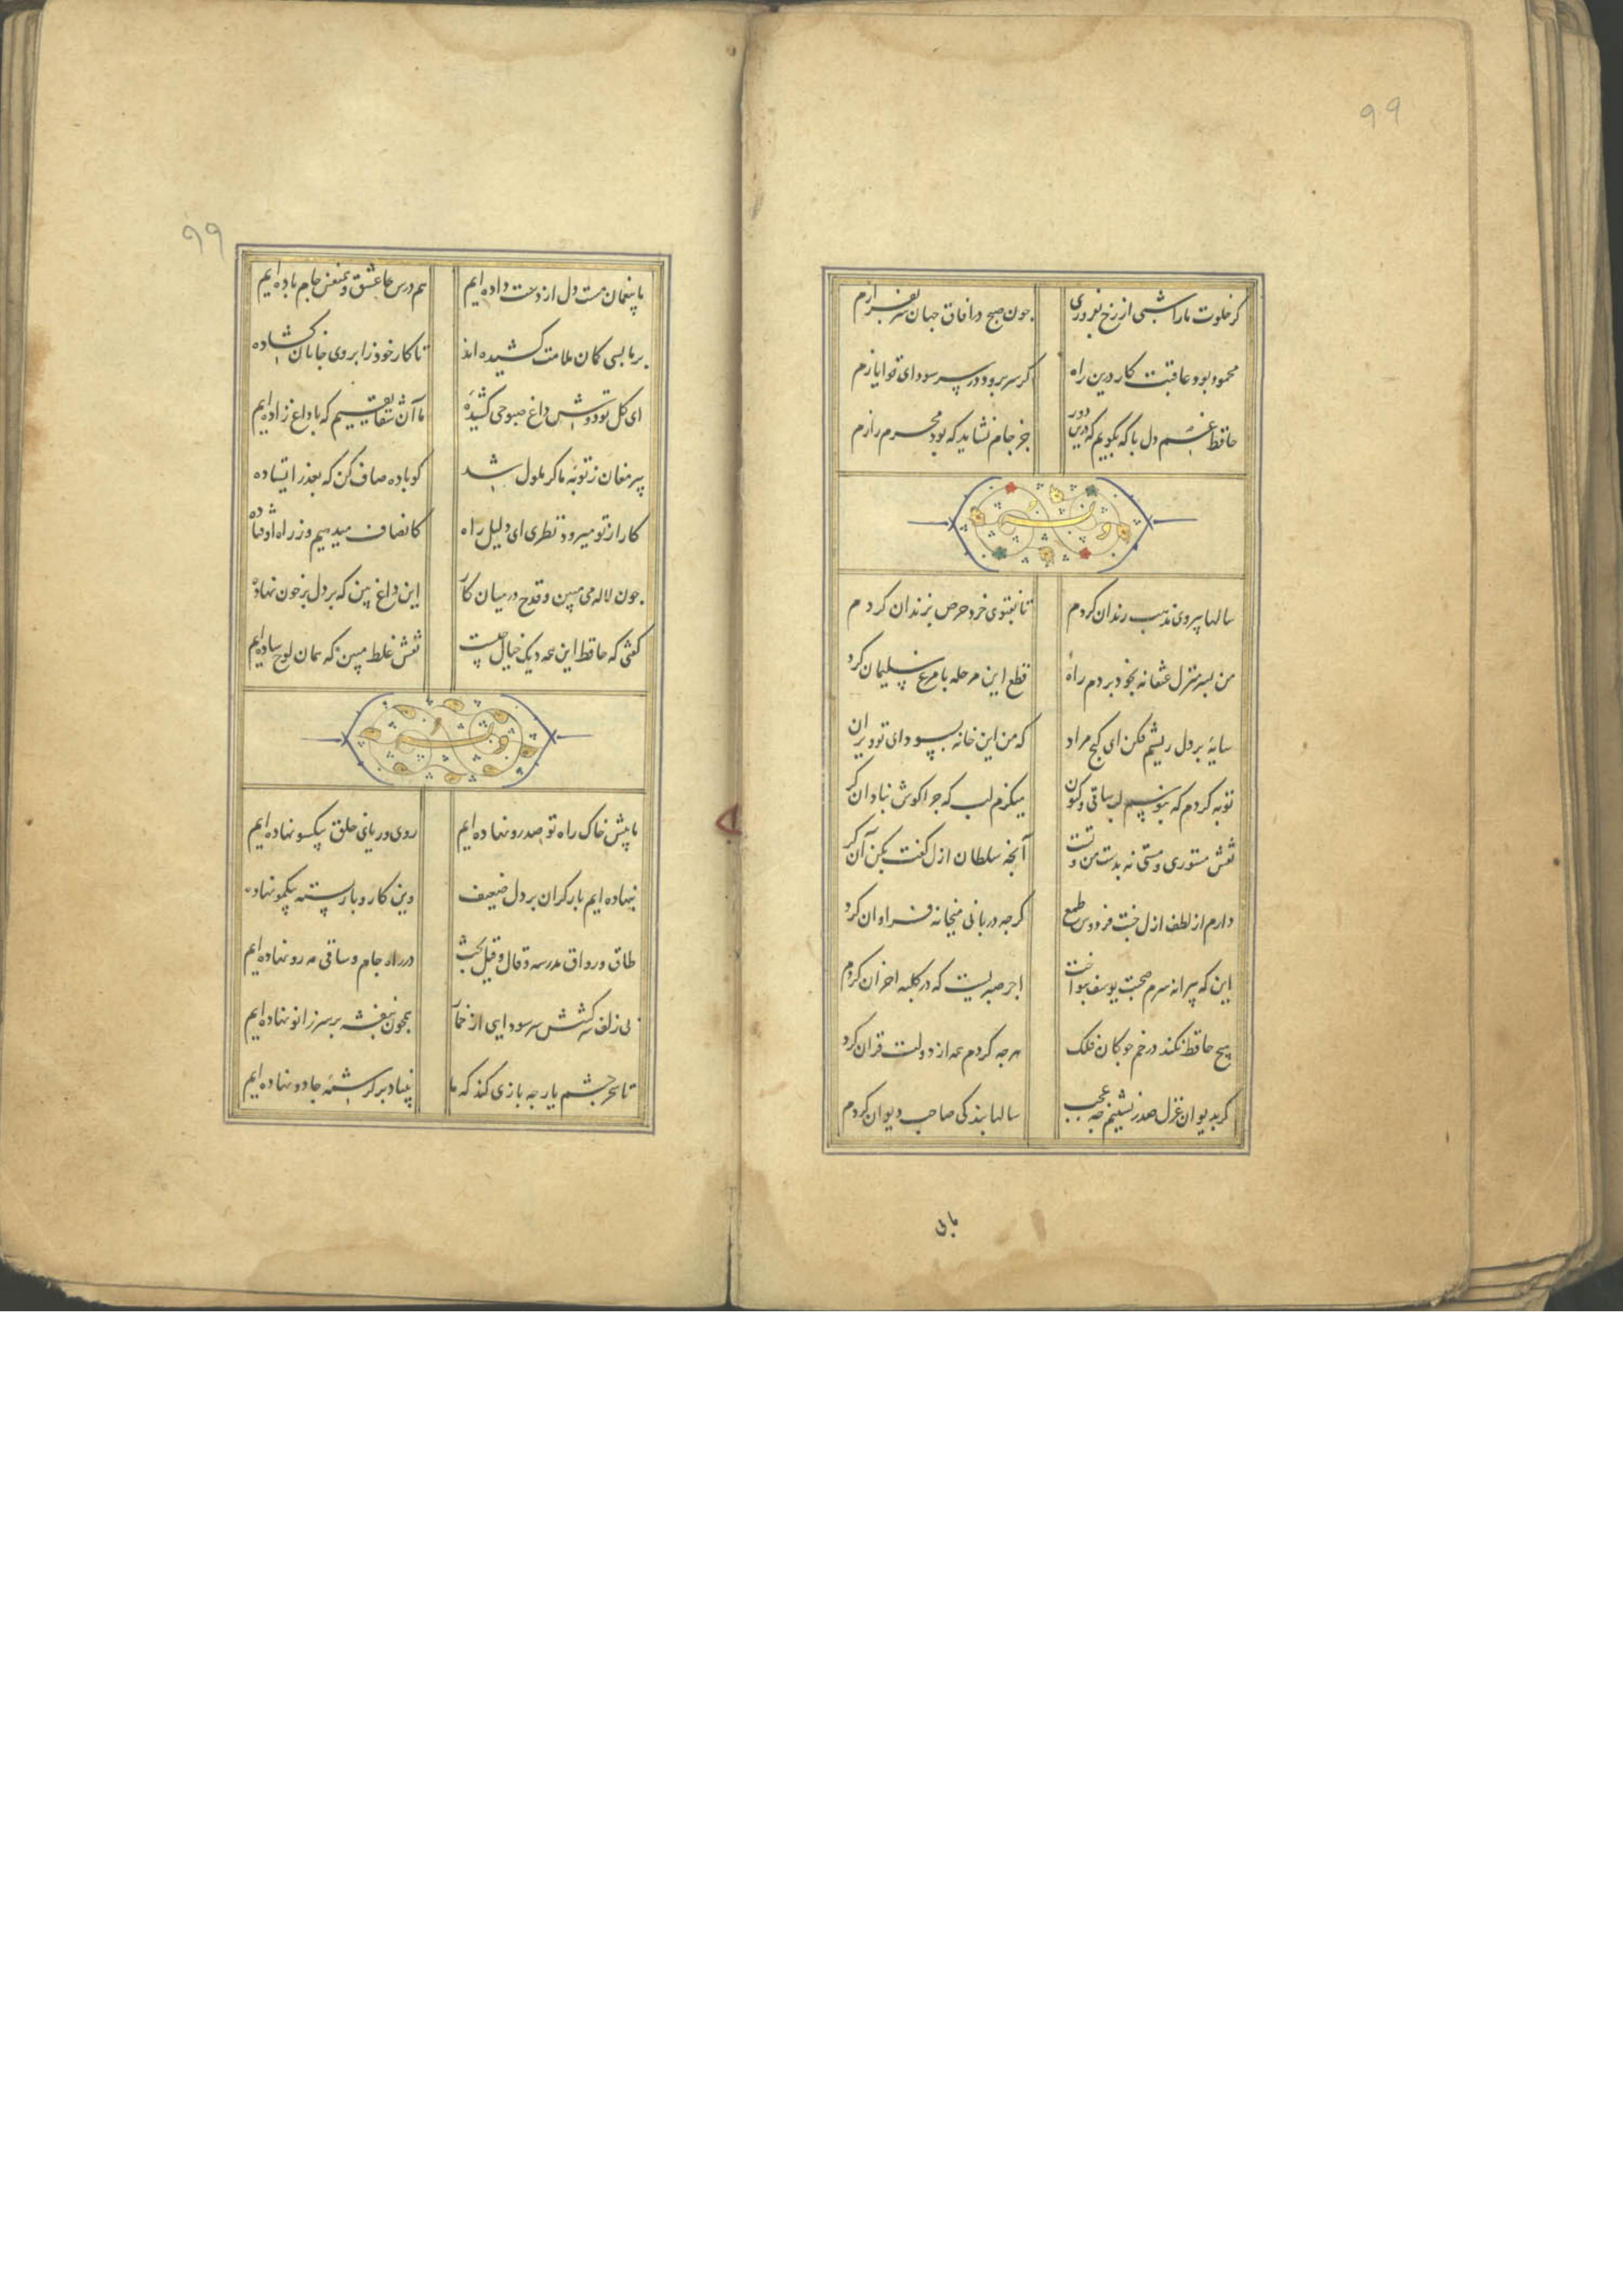 ۹۹
گر خلوت ما را شبی از رخ بفروزی
چون صبح در آفاق جهان سر بفرازم
محمود بود عاقبت کار درین راه
گر سر برود در سر سودای تو ایازم
حافظ غم دل با که بگویم که درین دور
جز جام نشاید که بود محرم رازم
وله
سالها پیروی مذهب رندان کردم
تا بفتوی خرد حرص بزندان کردم
من بسر منزل عنقا نه بخود بردم راه
قطع این مرحله با مرغ سلیمان کرد
سایهٔ بر دل ریشم فکن ای گنج مراد
که من این خانه بسودای تو ویران
توبه کردم که نبوسم لب ساقی و کنون
میگزم لب که چرا گوش بنادان کر
نقش مستوری و مستی نه بدست من و تست
آنچه سلطان ازل گفت بکن آن کر
دارم از لطف ازل جنت فردوس طمع
گرچه دربانی میخانه فراوان کرد
این که پیرانه سرم صحبت یوسف بنواخت
اجر صبریست که در کلبه احزان کردم
هیچ حافظ نکند در خم چوگان فلک
هرچه کردم همه از دولت قران کرد
گر بدیوان غزل صدر نشینم چه عجب
سالها بندگی صاحب دیوان کردم
ما بی
۹۹
ما بیغمان مست دل از دست داده ایم
هم درس عاشق و همنفس جام باده ایم
بر ما بسی کمان ملامت کشیده اند
تا کار خود ز ابروی جانان گشاده
ای گل تو دوش داغ صبوحی کشیده
ما آن شقایقیم که با داغ زاده ایم
پیر مغان ز توبه ما گر ملول شد
گو باده صاف کن که بعذر ایستاده
کار از تو میرود نظری ای دلیل راه
کانصاف میدهیم وز راه اوفتاده
چون لاله می مبین و قدح در میان کار
این داغ بین که بر دل پر خون نهاده
گفتی که حافظ این همه رنگ خیال چیست
نقش غلط مبین که همان لوح ساده ایم
وله
ما پیش خاک راه تو صد رو نهاده ایم
روی و ریای خلق بیکسو نهاده ایم
ننهاده ایم بار گران بر دل ضعیف
وین کار و بار بسته بیکمو نهاده
طاق و رواق مدرسه و قال و قیل بحث
در راه جام و ساقی مه رو نهاده ایم
بی زلف سرکشش سر سودایی از خمار
همچون بنفشه بر سر زانو نهاده ایم
تا سحر چشم یار چه بازی کند که ما
بنیاد بر کرشمهٔ جادو نهاده ایم